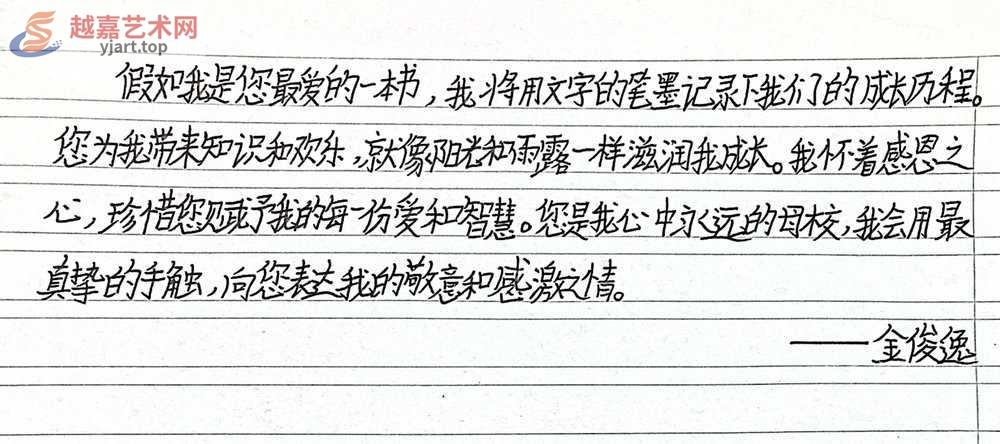 越嘉艺术网
yjart.top
假如我是您最爱的一本书，我将用文字的笔墨记录下我们的成长历程。
您为我带来知识和欢乐，就像阳光和雨露一样滋润我成长。我怀着感恩之
心，珍惜您赋予我的每一份爱和智慧。您是我心中永远的母校，我会用最
真挚的手触，向您表达我的敬意和感激之情。
——金俊逸